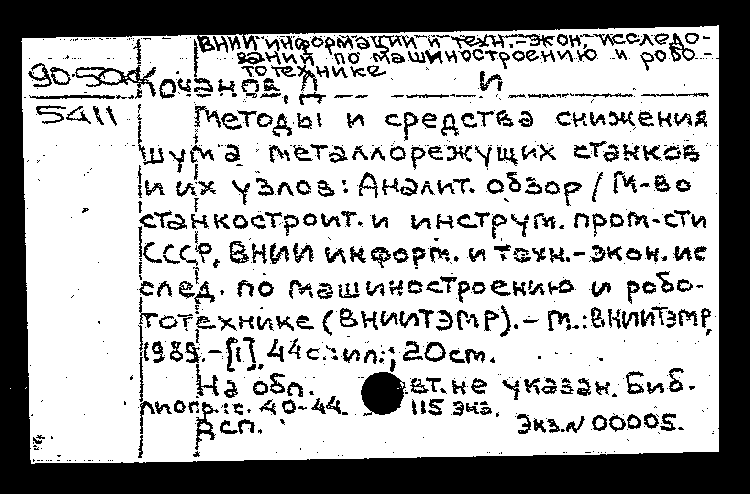 ВНИИ информации и техн.-экон. исследо-
ваний по машиностроению и робо-
тотехнике
90-50кк
Кочанов, Д И
5411
Методы и средства снижения
шума металлорежущих станков
и их узлов: Аналит. обзор / М-во
станкостроит. и инструм. пром-сти
СССР, ВНИИ информ. и техн.-экон. ис
след. по машиностроению и робо-
тотехнике (ВНИИТЭМР). - М.: ВНИИТЭМР,
1989. - [1], 44 с.: ил.; 20 см.
На обл. авт. не указан. Биб-
лиогр.: с. 40-44. 115 экз.
ДСП. Экз. N 00005.